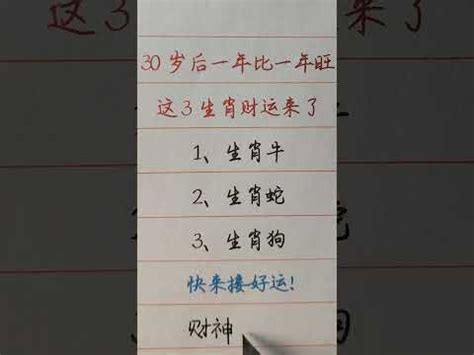 30岁后一年比一年旺
这3生肖财运来了
1、生肖牛
2、生肖蛇
3、生肖狗
快来接好运!
财神